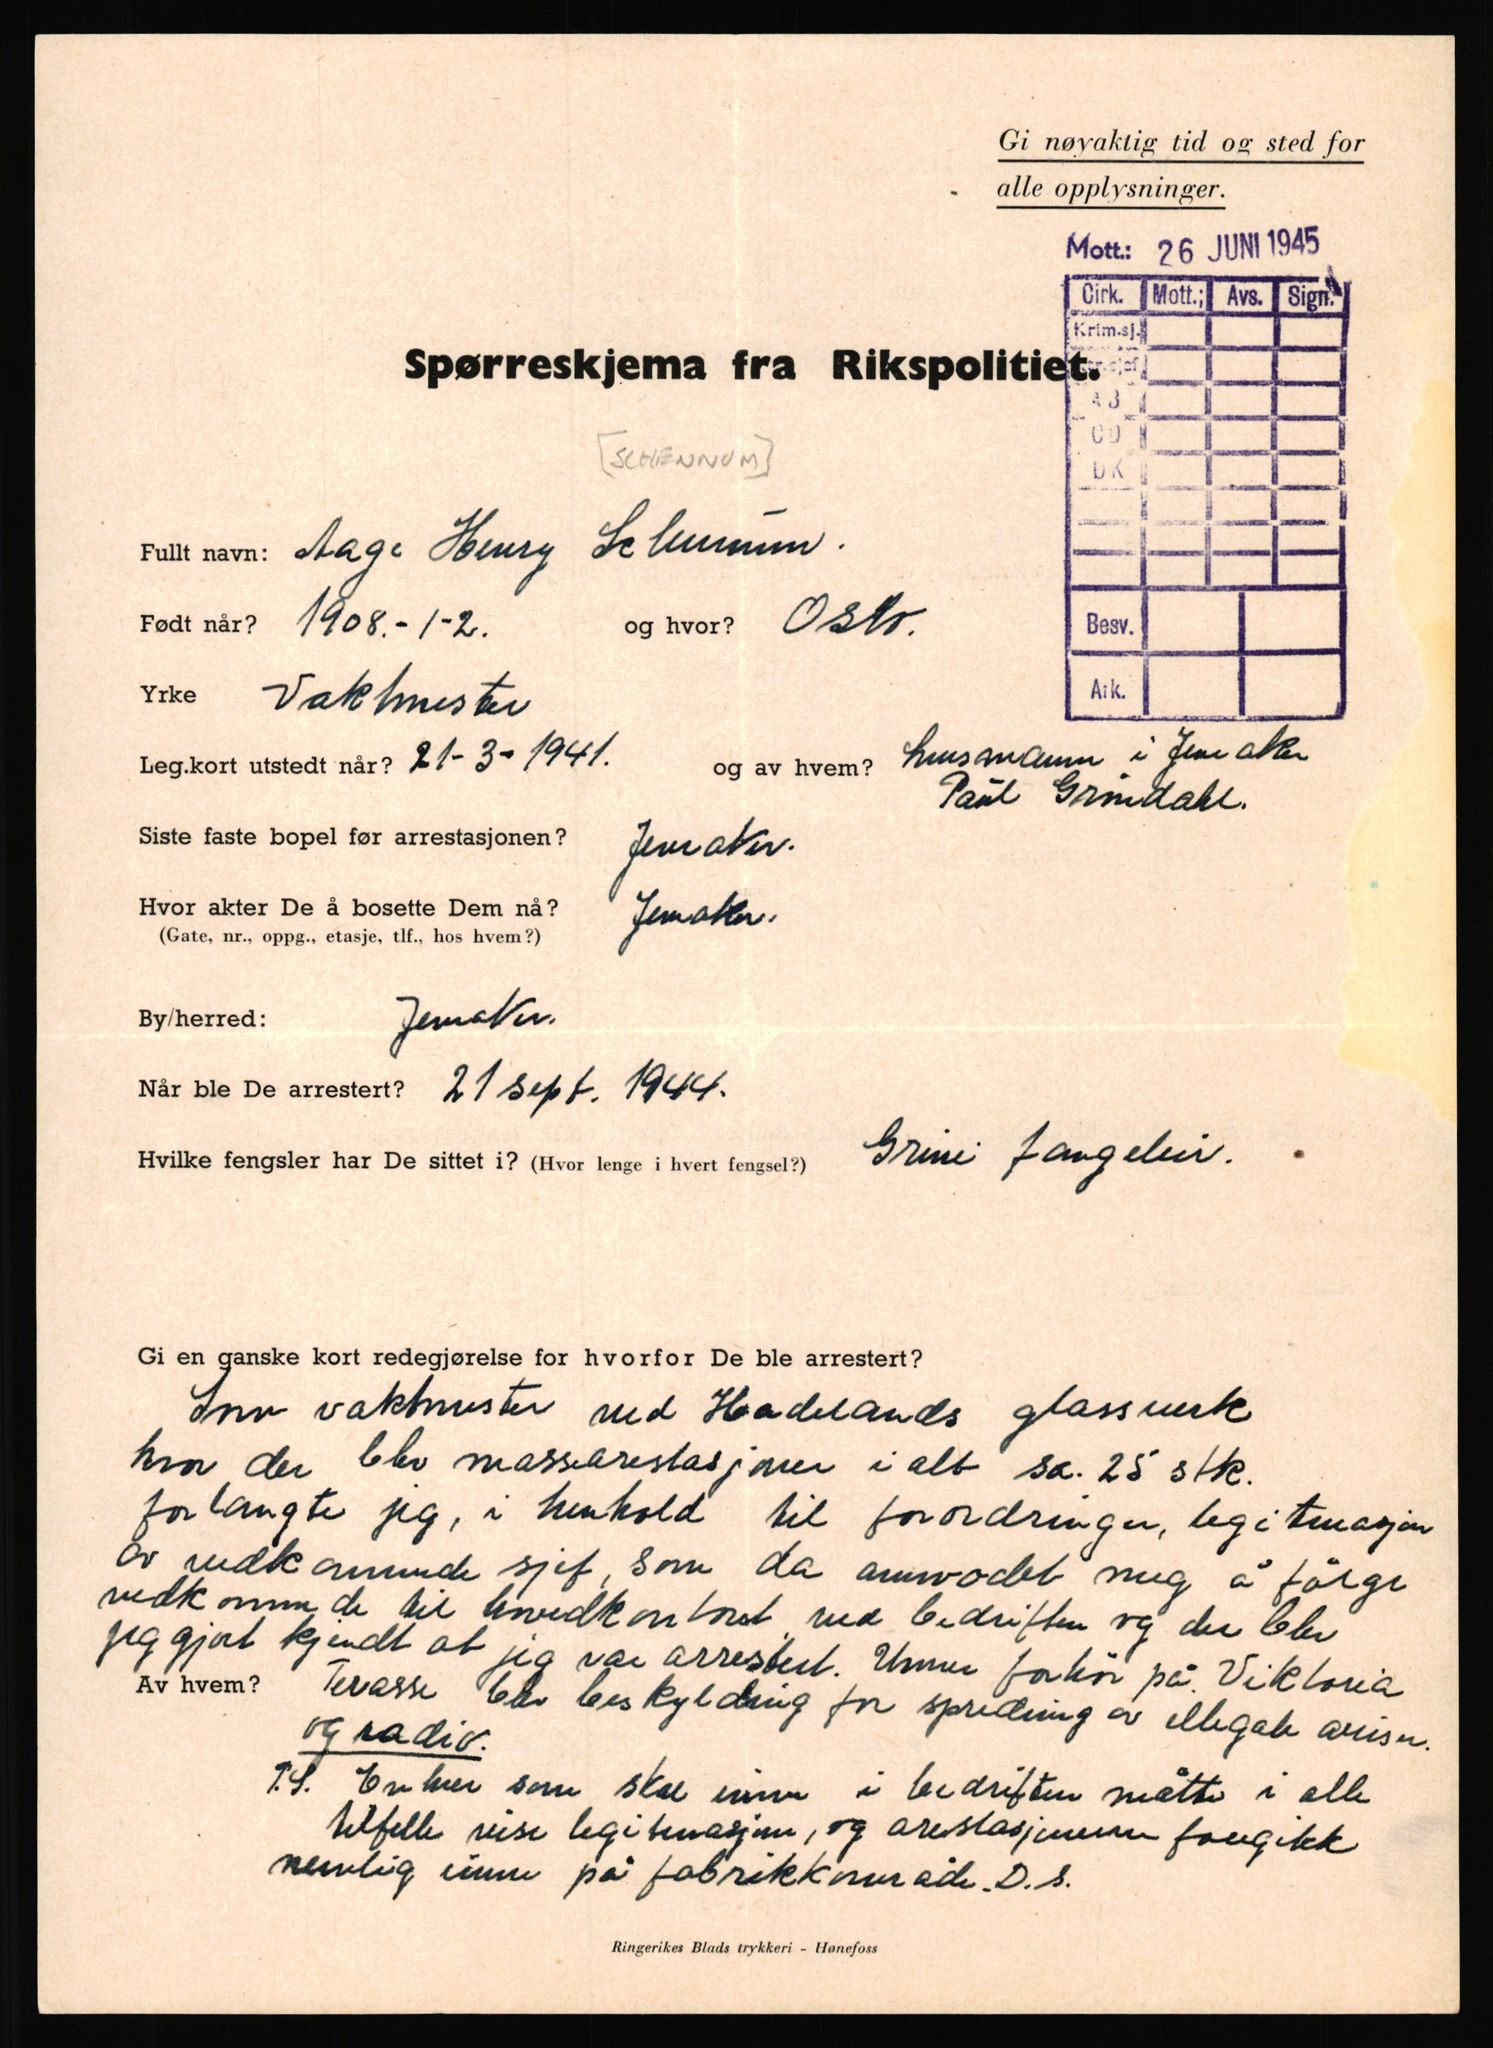 Gi nøyaktig tid og sted for
alle opplysninger.
Mott.: 26 JUNI 1945
Cirk. Mott.; Avs. Sign.
Krim.sj.
AB
CD
DK
Besv.
Ark.
Spørreskjema fra Rikspolitiet.
[SCHENNUM]
Fullt navn: Aage Henry Schennum.
Født når? 1908.-1-2. og hvor? Oslo.
Yrke Vaktmester
Leg.kort utstedt når? 21-3-1941. og av hvem? lensmann i Jevnaker
Paul Grøndahl.
Siste faste bopel før arrestasjonen? Jevnaker.
Hvor akter De å bosette Dem nå? Jevnaker.
(Gate, nr., oppg., etasje, tlf., hos hvem?)
By/herred: Jevnaker.
Når ble De arrestert? 21 sept. 1944.
Hvilke fengsler har De sittet i? (Hvor lenge i hvert fengsel?) Grini fangeleir.
Gi en ganske kort redegjørelse for hvorfor De ble arrestert?
Som vaktmester ved Hadelands glassverk
hvor der blev massearestasjoner i alt sa. 25 stk.
forlangte jeg, i henhold til forordringer, legitimasjon
av vedkommende sjef, som da anmodet meg å følge
vedkommende til hovedkontoret ved bedriften og der blev
jeg gjort kjendt at jeg var arrestert. Unner forhør på Viktoria
Av hvem? Terasse blev beskyldning for spredning av illegale aviser.
og radio.
P.S. Enhver som skal inn i bedriften måtte i alle
tilfelle vise legitimasjon, og arestasjonene foregikk
nemlig inne på fabrikkområde. D.S.
Ringerikes Blads trykkeri - Hønefoss